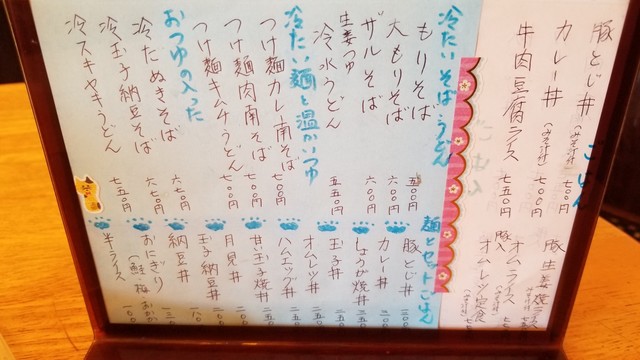 ごはん
豚とじ丼 (みそ汁付) 七〇〇
カレー丼 (みそ汁付) 七〇〇円
牛肉豆腐ライス 七五〇円
豚生姜焼ライス
オムライス
オムレツ定食
冷たいそば・うどん
もりそば 五〇〇円
大もりそば 六〇〇円
ザルそば 六〇〇円
生姜つゆ
冷水うどん 五五〇円
冷たい麺と温かいつゆ
つけ麺カレー南そば 七〇〇円
つけ麺肉南そば 七〇〇円
つけ麺キムチうどん 七〇〇円
おつゆの入った
冷たぬきそば 六七〇円
冷玉子納豆そば 六七〇円
冷スキヤキうどん 七五〇円
麺とセットごはん
豚とじ丼
カレー丼
しょうが焼丼
玉子丼
オムレツ丼
ハムエッグ丼
甘玉子焼丼
月見丼
玉子納豆丼
納豆丼
おにぎり (鮭 梅 おかか)
半ライス